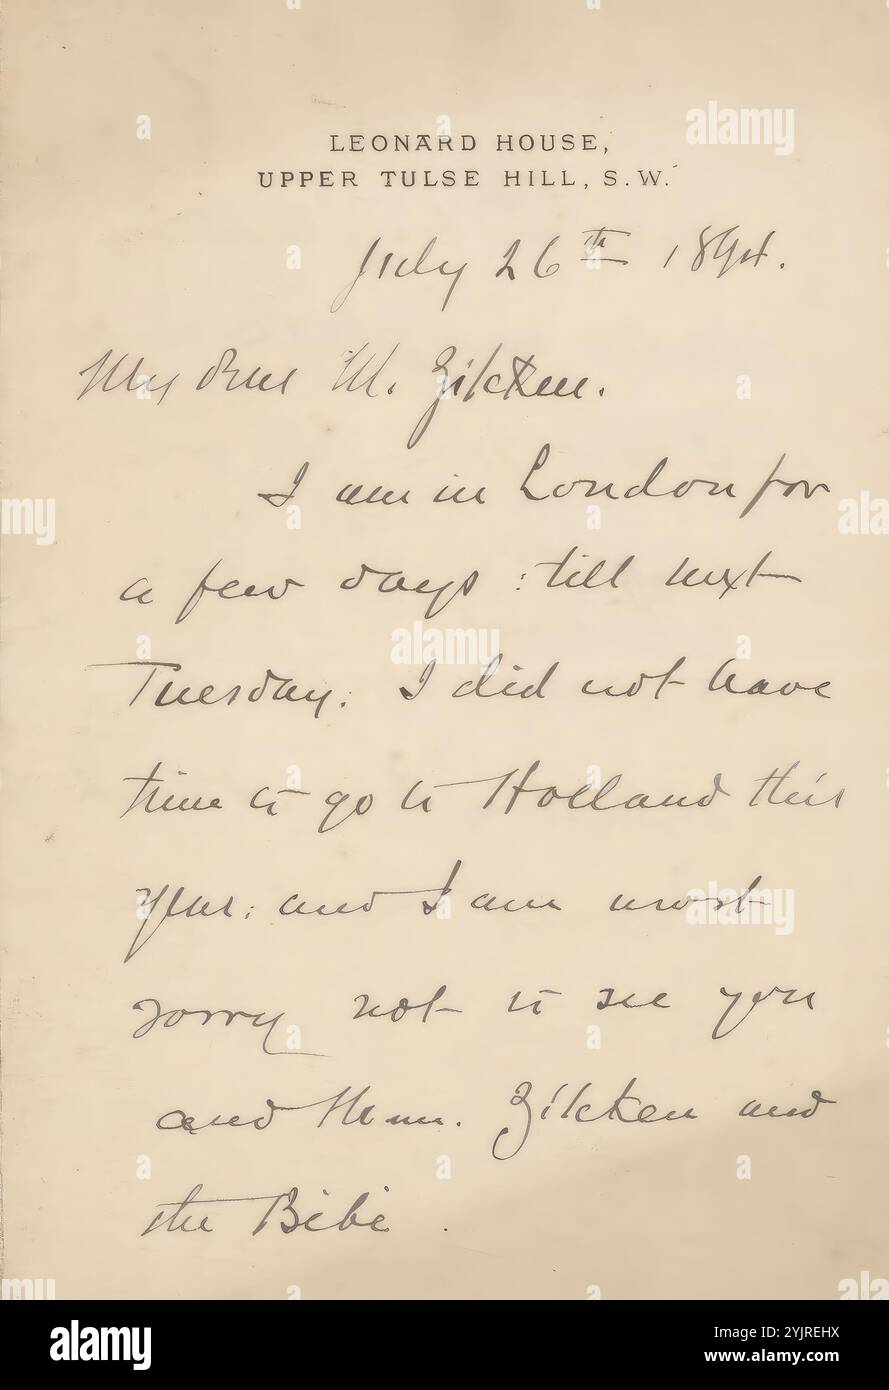 LEONARD HOUSE,
UPPER TULSE HILL, S.W.
July 26th 1894.
My dear M. Zilcken.
I am in London for
a few days : till next
Tuesday. I did not have
time to go to Holland this
year : and I am most
sorry not to see you
and Mme. Zilcken and
the Bébé .
alamy
Image ID: 2YJREHX
www.alamy.com